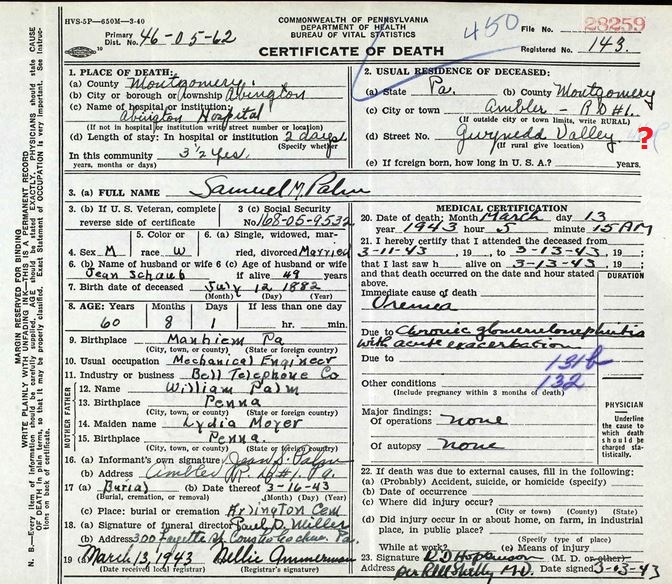 HVS-5P—650M—3-40
COMMONWEALTH OF PENNSYLVANIA
DEPARTMENT OF HEALTH
BUREAU OF VITAL STATISTICS
CERTIFICATE OF DEATH
450
Primary Dist. No. 46-05-62
File No. 28259
Registered No. 143.
N. B.—Every item of Information should be carefully supplied. AGE should be stated EXACTLY. PHYSICIANS should state CAUSE
OF DEATH in plain terms, so that it may be properly classified. Exact Statement of OCCUPATION is very important. See instructions on back of certificate.
MARGIN RESERVED FOR BINDING
WRITE PLAINLY WITH UNFADING INK—THIS IS A PERMANENT RECORD
1. PLACE OF DEATH:
(a) County Montgomery.
(b) City or borough or township Abington
(c) Name of hospital or institution:
Abington Hospital
(If not in hospital or institution write street number or location)
(d) Length of stay: In hospital or institution 2 days
(Specify whether
In this community 3 1/2 Yrs
years, months or days)
2. USUAL RESIDENCE OF DECEASED:
(a) State Pa. (b) County Montgomery
(c) City or town Ambler - RD#1.
(If outside city or town limits, write RURAL)
(d) Street No. Gwynedd Valley ?
(If rural give location)
(e) If foreign born, how long in U. S. A.? years.
3. (a) FULL NAME Samuel M. Palm
3. (b) If U. S. Veteran, complete reverse side of certificate
3 (c) Social Security No. 168-05-9532
4. Sex M
5. Color or race W
6. (a) Single, widowed, married, divorced Married
6. (b) Name of husband or wife Jean Schaub
6 (c) Age of husband or wife if alive 49 years
7. Birth date of deceased July 12 1882
(Month) (Day) (Year)
8. AGE: Years Months Days If less than one day
60 8 1 hr. min.
9. Birthplace Manhiem Pa
(City, town, or county) (State or foreign country)
10. Usual occupation Mechanical Engineer
11. Industry or business Bell Telephone Co
MOTHER FATHER
12. Name William Palm
13. Birthplace Penna
(City, town, or county) (State or foreign country)
14. Maiden name Lydia Moyer
15. Birthplace Penna.
(City, town, or county) (State or foreign country)
16. (a) Informant's own signature Jean S. Palm
(b) Address Ambler R. D #1. Pa.
17 (a) Burial (b) Date thereof 3-16-43
(Burial, cremation, or removal) (Month) (Day) (Year)
(c) Place: burial or cremation Arlington Cem
18. (a) Signature of funeral director Paul D. Miller
(b) Address 300 Fayette St, Conshohocken, Pa.
19 (a) March 13, 1943 Nellie Ammerman
(Date received local registrar) (Registrar's signature)
MEDICAL CERTIFICATION
20. Date of death: Month March day 13
year 1943 hour 5 minute 15 AM
21. I hereby certify that I attended the deceased from
3-11-43, 19 , to 3-13-43, 19 ;
that I last saw h alive on 3-13-43, 19 ;
and that death occurred on the date and hour stated above.
DURATION
Immediate cause of death
Uremea
Due to Chronic glomerulonephritis
with acute exacerbation
Due to 131b
Other conditions 132
(Include pregnancy within 3 months of death)
PHYSICIAN
Underline the cause to which death should be charged statistically.
Major findings:
Of operations none
Of autopsy none
22. If death was due to external causes, fill in the following:
(a) (Probably) Accident, suicide, or homicide (specify)
(b) Date of occurrence
(c) Where did injury occur?
(City or town) (County) (State)
(d) Did injury occur in or about home, on farm, in industrial place, in public place?
(Specify type of place)
While at work? (e) Means of injury
23. Signature (M. D. or other)
Address per RM Shelly M.D. Date signed 3-13-43